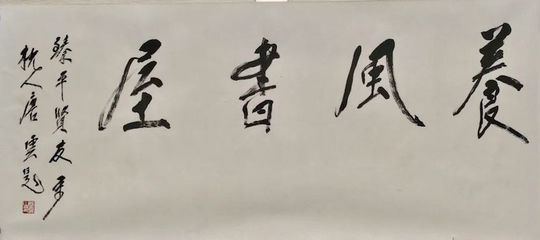 養風書屋
臻平賢友
杭人唐雲題